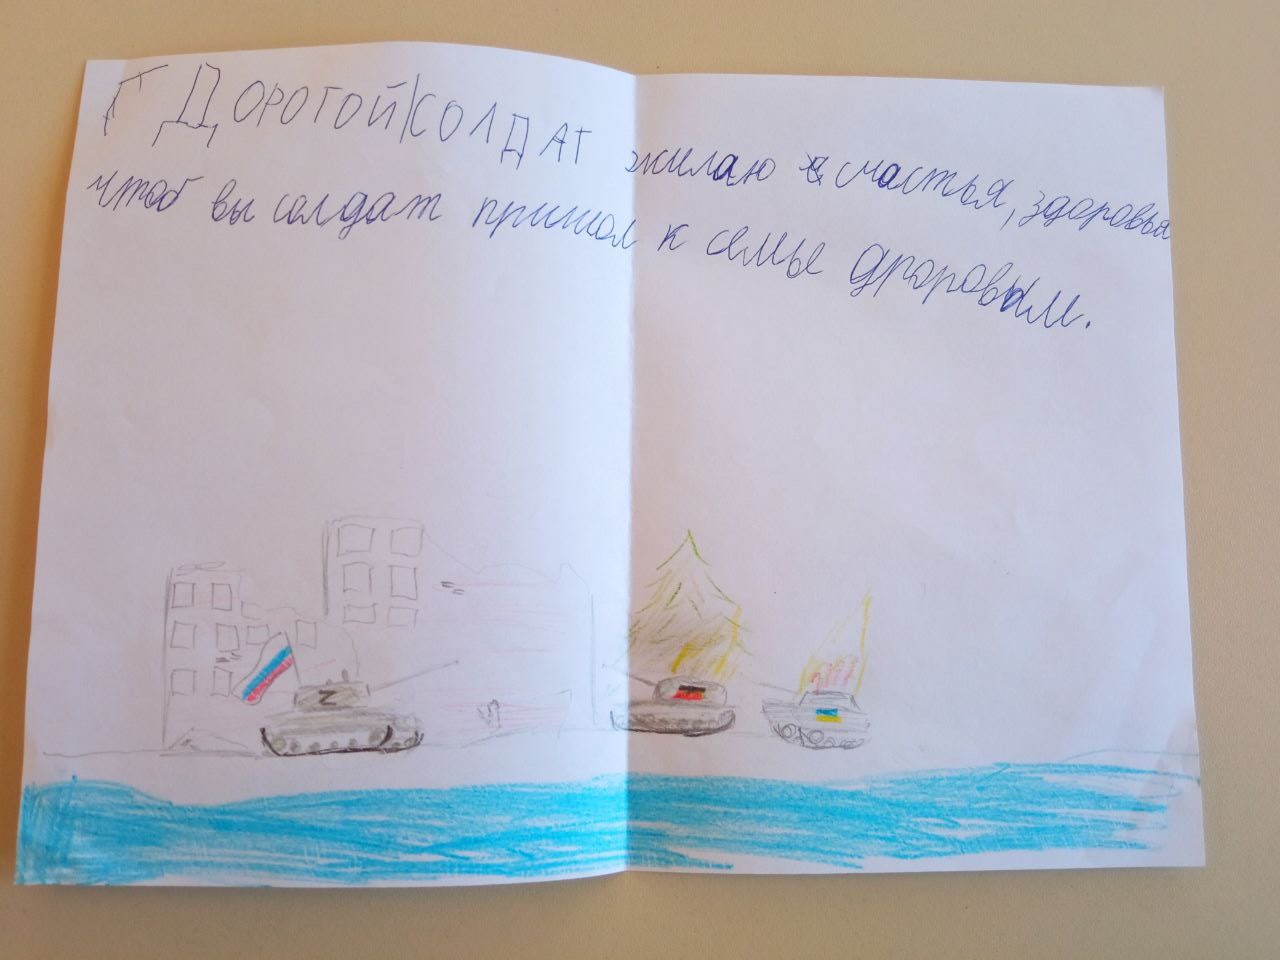 Г Дорогой солдат жилаю счастья, здоровья
чтоб вы солдат пришол к семье здоровым.
Z